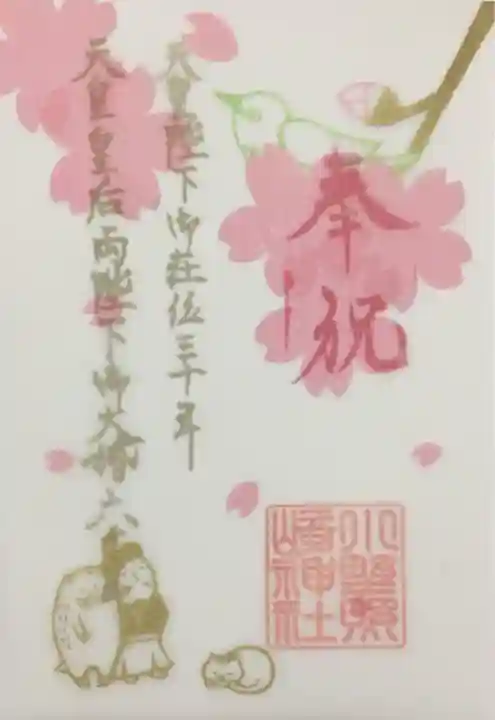 奉祝
天皇陛下御在位三十年
天皇皇后両陛下御大婚六十
神社